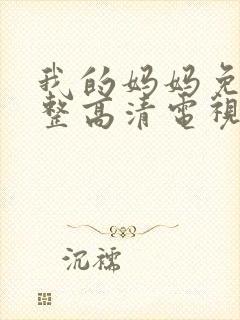 我的妈妈免
整高清電視
沉穤